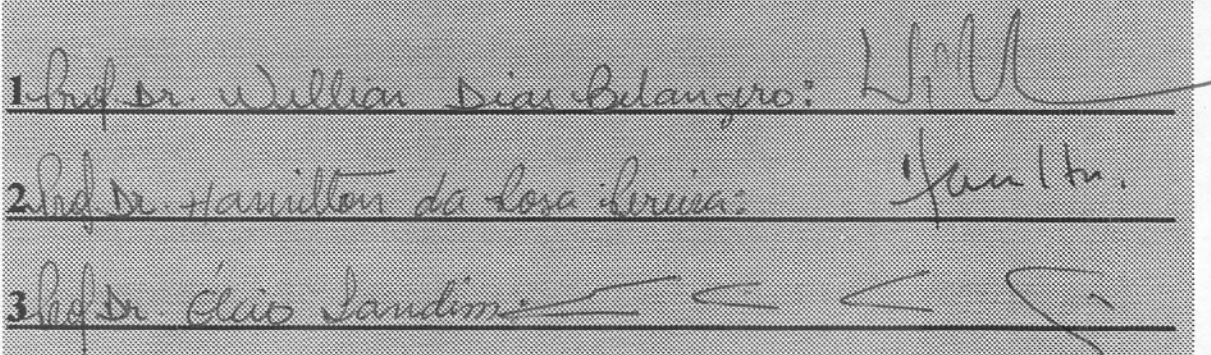 1 Prof Dr. Willian Dias Belangero:
2 Prof. Dr. Hamilton da Rosa Pereira:
3 Prof Dr. Élcio Landim: